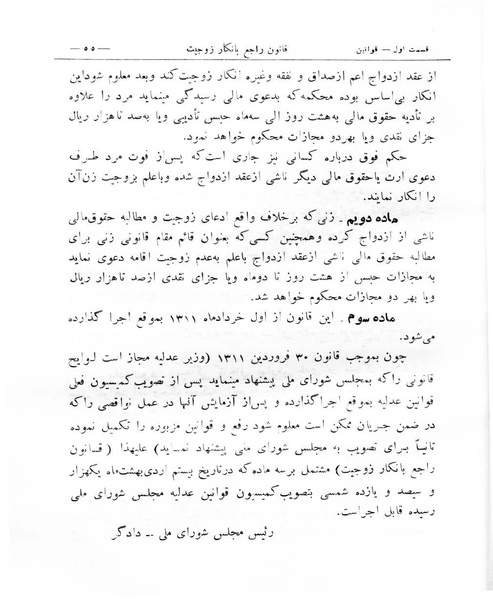 قسمت اول — قوانین قانون راجع بانکار زوجیت — ۵۵ —
از عقد ازدواج اعم ازصداق و نفقه وغیره انکار زوجیت کند وبعد معلوم شود این
انکار بی‌اساس بوده محکمه که بدعوی مالی رسیدگی مینماید مرد را علاوه
بر تأدیه حقوق مالی به‌هشت روز الی سه‌ماه حبس تأدیبی ویا به‌صد تاهزار ریال
جزای نقدی ویا بهردو مجازات محکوم خواهد نمود.
حکم فوق درباره کسانی نیز جاری است که پس‌از فوت مرد طرف
دعوی ارث یاحقوق مالی دیگر ناشی ازعقد ازدواج شده وباعلم بزوجیت زن‌آن
را انکار نمایند.
ماده دویم ـ زنی‌که برخلاف واقع ادعای زوجیت و مطالبه حقوق‌مالی
ناشی از ازدواج کرده وهمچنین کسی‌که بعنوان قائم مقام قانونی زنی برای
مطالبه حقوق مالی ناشی ازعقد ازدواج باعلم به‌عدم زوجیت اقامه دعوی نماید
به مجازات حبس از هشت روز تا دوماه ویا جزای نقدی ازصد تاهزار ریال
ویا بهر دو مجازات محکوم خواهد شد.
ماده سوم ـ این قانون از اول خردادماه ۱۳۱۱ بموقع اجرا گذارده
می‌شود.
چون بموجب قانون ۳۰ فروردین ۱۳۱۱ (وزیر عدلیه مجاز است لوایح
قانونی راکه بمجلس شورای ملی پیشنهاد مینماید پس از تصویب کمیسیون فعلی
قوانین عدلیه بموقع اجراگذارده و پس‌از آزمایش آنها در عمل نواقصی راکه
در ضمن جریان ممکن است معلوم شود رفع و قوانین مزبوره را تکمیل نموده
ثانیاً برای تصویب به مجلس شورای ملی پیشنهاد نماید) علیهذا (قانون
راجع بانکار زوجیت) مشتمل برسه ماده‌که درتاریخ بیستم اردیبهشت‌ماه یکهزار
و سیصد و یازده شمسی بتصویب کمیسیون قوانین عدلیه مجلس شورای ملی
رسیده قابل اجراست.
رئیس مجلس شورای ملی ـ دادگر